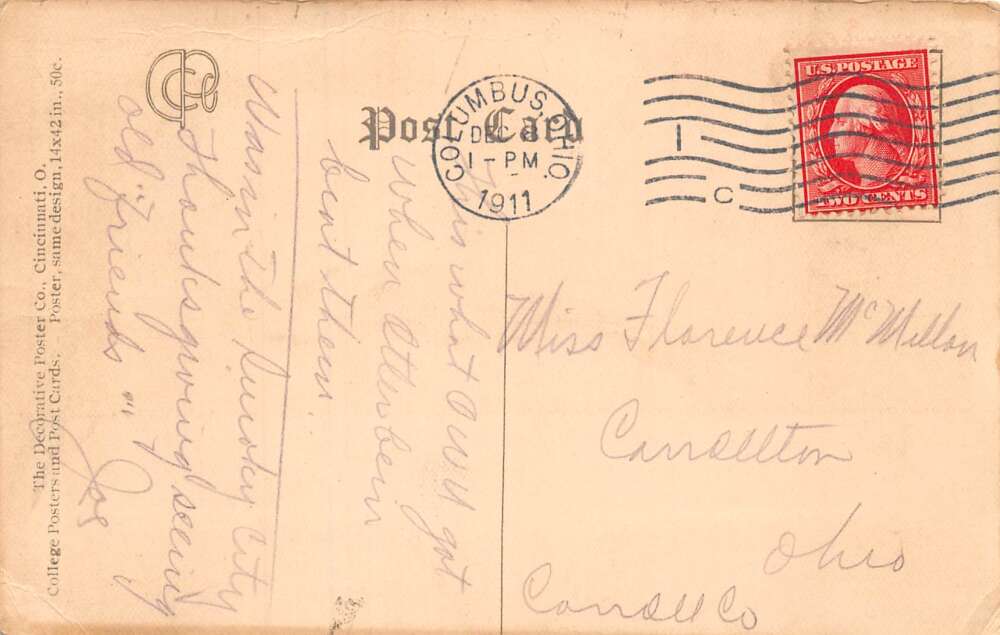 The Decorative Poster Co., Cincinnati, O.
College Posters and Post Cards. — Poster, same design, 14x42 in., 50c.
Post Card
COLUMBUS, OHIO.
DEC
1-PM
1911
1
C
U.S. POSTAGE
TWO CENTS
This what O.W.U. got
when Otterbein
beat them.
Was in the Smoky City
Thanksgiving seeing
old "Friends"
Joe
Miss Florence McMillan
Carrollton
Ohio
Carroll Co